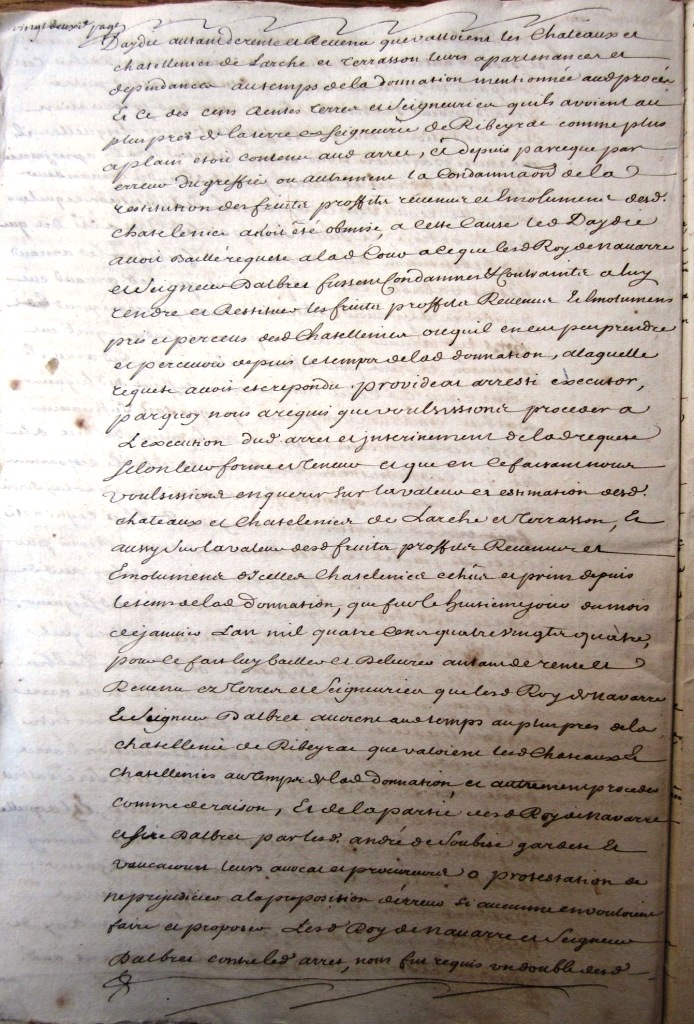 vingt deuxie page
Daydie autant de rente et Revenu que valloient les Chateaux et
chatellenies de Larche et Terrasson leurs apartenances et
dependances au temps de la donnation mentionnée aud procés
Et ce des cens Rentes terres et Seigneuries quils avoient au
plus pres de la terre et Seigneurie de Ribeyrac comme plus
a plain etoit contenu aud arret, et depuis par ce que par
erreur du greffier ou autrement la Condamnaon de la
restitution des fruits proffits revenus et Emolumens desd.
chatelenies avoit été obmise, a cette Cause led Daydie
avoit Baillé requete a lad Cour a ce que lesd Roy de navarre
et Seigneur Dalbret fussent Condamnes & Contraints a luy
rendre et Restituer les fruits proffits Revenus et Emolumens
pris et perceus desd Chatellenies ou quil en eut peu prendre
et percevoir depuis le temps de lad donnation, a laquelle
requete avoit été repondu. provideat arresti executor,
parquoy nous a requis que voulsissions proceder a
L'execution dud arret et interinement de lad requete
selon leur forme et teneur et que en ce faisant nous
voulsissions enquerir sur la valeur et estimation desd.
chateaux et Chatelenies de Larche et Terrasson, Et
aussy sur la valeur desd fruits proffits Revenus et
Emolumens d'icelles Chatelenies echus et prins depuis
le tems de lad donnation, que fut le huitieme jour du mois
de janvier Lan mil quatre Cens quatre vingts quatre,
pour ce fait luy bailler et Delivrer autant de rente et
Revenu ez Terres et Seigneuries que lesd Roy de Navarre
Et Seigneur Dalbret avoient aud temps au plus pres de la
chatellenie de Ribeyrac que valoient lesd Chateaux Et
chatellenies au Temps de lad donnation, et autrement proceder
comme de raison, Et de la partie desd Roy de Navarre
et sire Dalbret par lesd. andré de Soubise gardete Et
vaucacourt leurs avocat et procureurs o protestation de
ne prejudicier a la proposition d'erreur si aucune en vouloient
faire et proposer Lesd Roy de Navarre et Seigneur
Dalbret contre led arret, nous fut requis un double desd